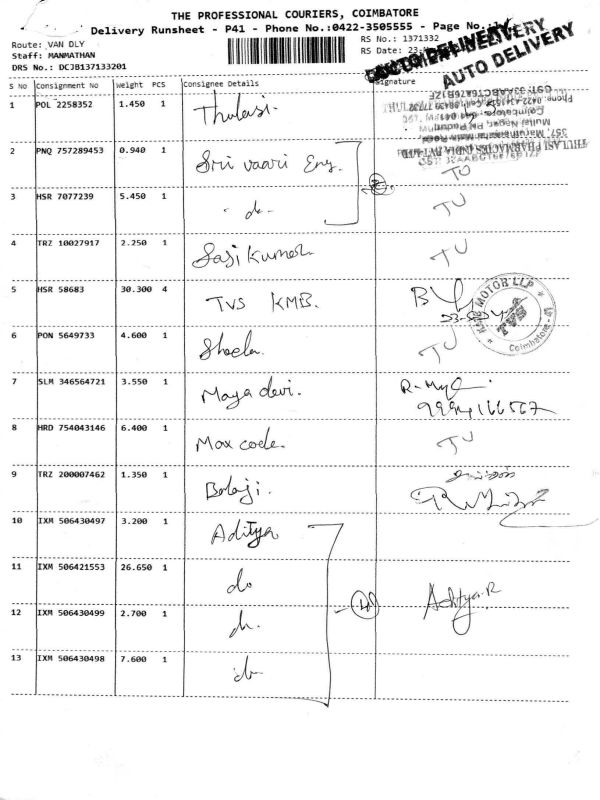 THE PROFESSIONAL COURIERS, COIMBATORE
Delivery Runsheet - P41 - Phone No.:0422-3505555 - Page No.:
Route: VAN DLY
Staff: MANMATHAN
DRS No.: DCJB137133201
RS No.: 1371332
RS Date: 23-
AUTO DELIVERY
S No Consignment No Weight PCS Consignee Details Signature
1 POL 2258352 1.450 1 Thulasi.
THULASI PHARMACIES INDIA PVT LTD
2 PNQ 757289453 0.940 1 Sri vaari Eng. TU
3 HSR 7077239 5.450 1 - do - 2 TU
4 TRZ 10027917 2.250 1 Sasi Kumar TU
5 HSR 58683 30.300 4 TVS KMB.
MOTOR LLP
TVS
Coimbatore
6 PON 5649733 4.600 1 Sheela TU
7 SLM 346564721 3.550 1 Maya devi.
8 HRD 754043146 6.400 1 Max code. TU
9 TRZ 200007462 1.350 1 Balaji.
10 IXM 506430497 3.200 1 Aditya
11 IXM 506421553 26.650 1 do
12 IXM 506430499 2.700 1 do. Aditya.R
13 IXM 506430498 7.600 1 do